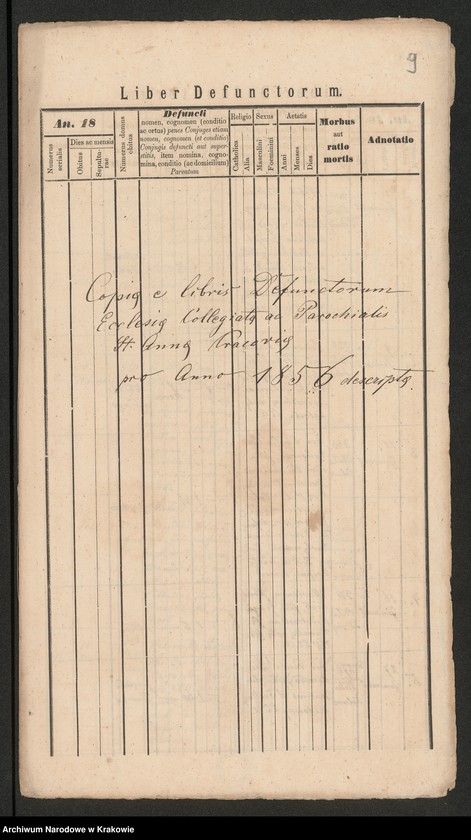 9
Liber Defunctorum.
An. 18
Numerus serialis
Dies ac mensis
Obitus
Sepulturae
Numerus domus obitus
Defuncti
nomen, cognomen (conditio
ac ortus) penes Conjuges etiam
nomen, cognomen (et conditio)
Conjugis defuncti aut super-
stitis, item nomina, cogno-
mina, conditio (ac domicilium)
Parentum
Religio
Catholica
Alia
Sexus
Masculini
Foeminini
Aetatis
Anni
Menses
Dies
Morbus
aut
ratio
mortis
Adnotatio
Copia e libris Defunctorum
Ecclesię Collegiatę ac Parochialis
St. Annę Cracovię
pro Anno 1856 descripta.
Archiwum Narodowe w Krakowie